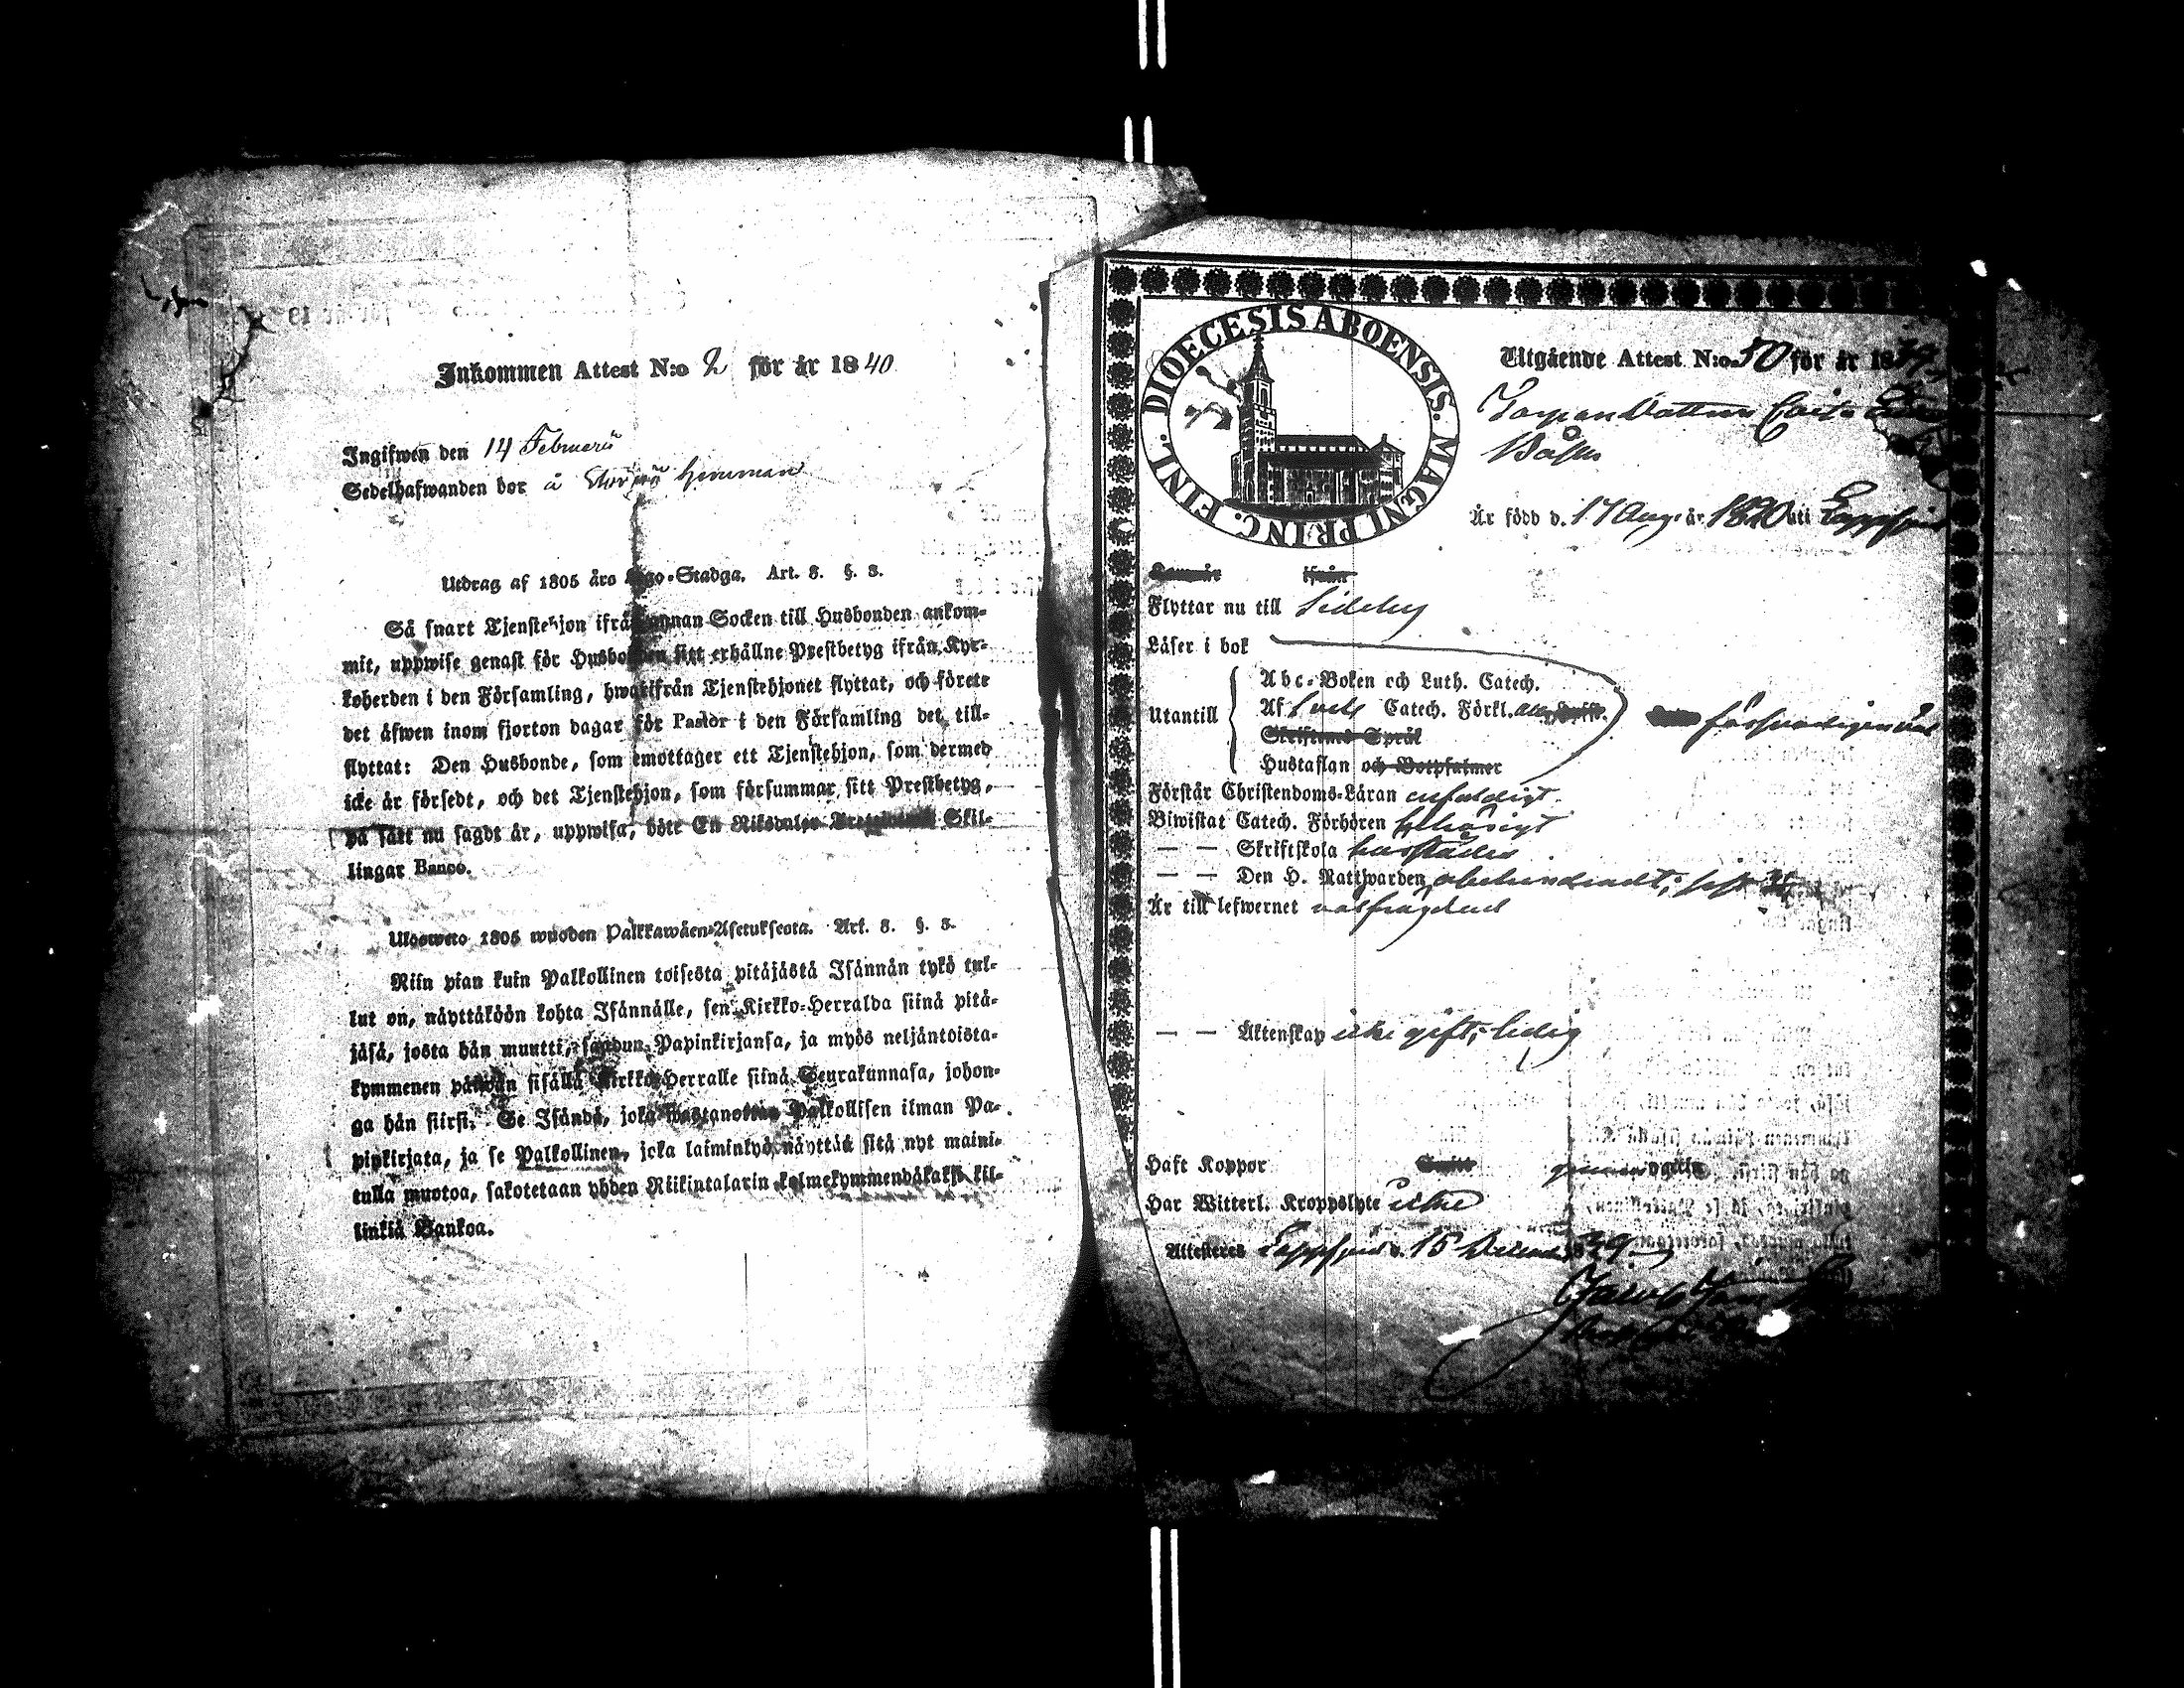 Inkommen Attest N:o 2 för år 1840
Ingifwen den 14 Februarii
Sedelhafwanden bor å hemman
Utdrag af 1805 års Lego-Stadga. Art. 8. §. 3.
Så snart Tjenstehjon ifrån annan Socken till Husbonden ankom-
mit, uppwise genast för Husbonden sitt erhållne Prestbetyg ifrån Kyr-
koherden i den Församling, hwarifrån Tjenstehjonet flyttat, och förete
det äfwen inom fjorton dagar för Pastor i den Församling det till-
flyttat: Den Husbonde, som emottager ett Tjenstehjon, som dermed
icke är försedt, och det Tjenstehjon, som försummar sitt Prestbetyg,
på sätt nu sagdt är, uppwisa, böte En Riksdaler Skil-
lingar Banco.
Ulosweto 1805 wuoden Palkkawäen-Asetuksesta. Art. 8. §. 3.
Niin pian kuin Palkollinen toisesta pitäjästä Isännän tykö tul-
lut on, näyttäköön kohta Isännälle, sen Kirkko-Herralda siinä pitä-
jäsä, josta hän muutti, saadun Papinkirjansa, ja myös neljäntoista-
kymmenen päiwän sisällä Kirkko-Herralle siinä Seurakunnasa, johon-
ga hän siirsi. Se Isändä, joka wastanottaa Palkollisen ilman Pa-
pinkirjata, ja se Palkollinen, joka laiminlyö näyttää sitä nyt maini-
tulla muotoa, sakotetaan yhden Riikintalarin kolmekymmendäkaksi kil-
linkiä Bankoa.
DIOECESIS ABOENSIS. MAGNI PRINC. FINL.
Utgående Attest N:o 50 för år 1839
Caisa
Är född d. 17 Aug. år 1820 uti Lappfjärd
ifrån
Flyttar nu till Sideby
Läser i bok
Utantill
Abc-Boken och Luth. Catech.
Af Catech. Förkl.
Skriftens Språk
Hustaflan och Botpsalmer
försvarligen väl
Förstår Christendoms-Läran enfaldigt
Biwistat Catech. Förhören behörigt
— — Skriftskola
— — Den H. Nattwarden obehindradt;
Är till lefwernet välfrägdad
— — Äktenskap icke gift, ledig
Haft Koppor
Har Witterl. Kroppslyte icke
Attesteras Lappfjärd d. 15 December 1839
Jacob